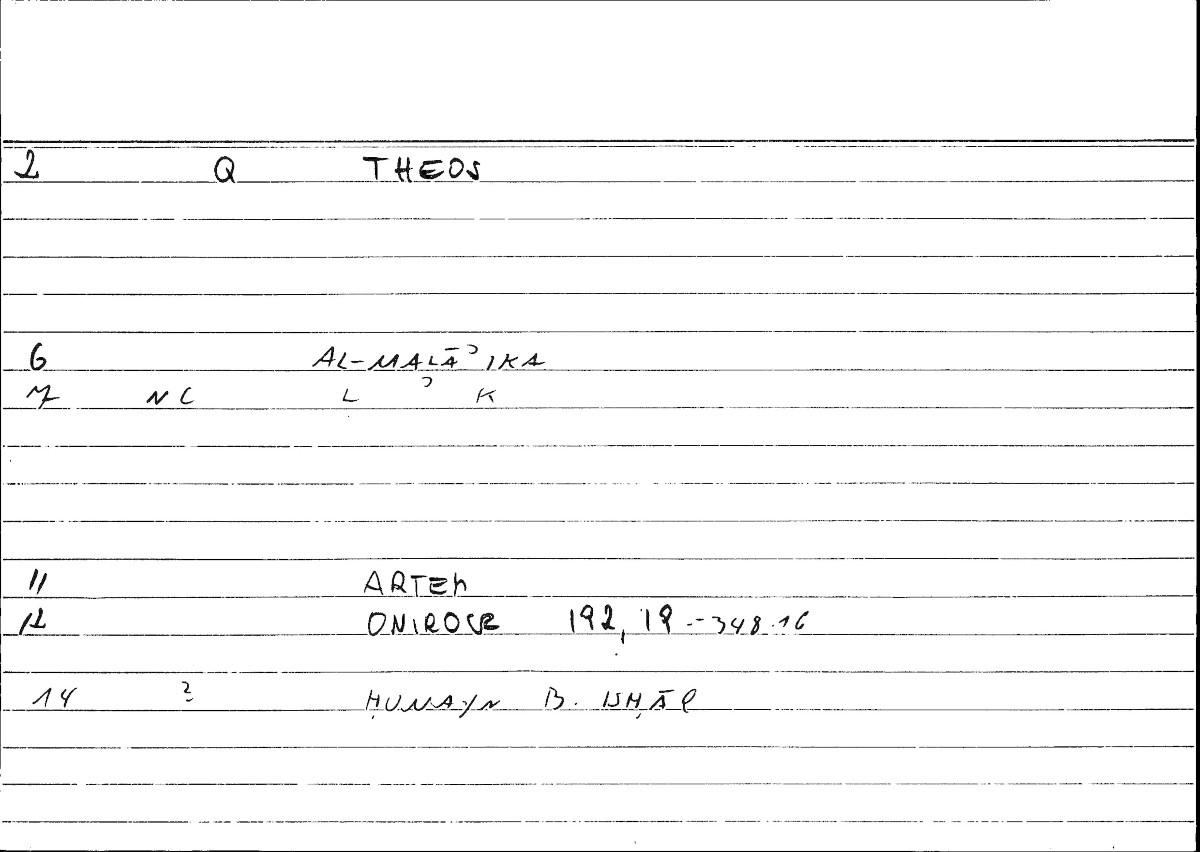 2 Q THEOS
6 AL-MALĀʾIKA
7 NC L ʾ K
11 ARTEM
12 ONIROCR 192,19--348.16
14 ? ḤUNAYN B. ISḤĀQ